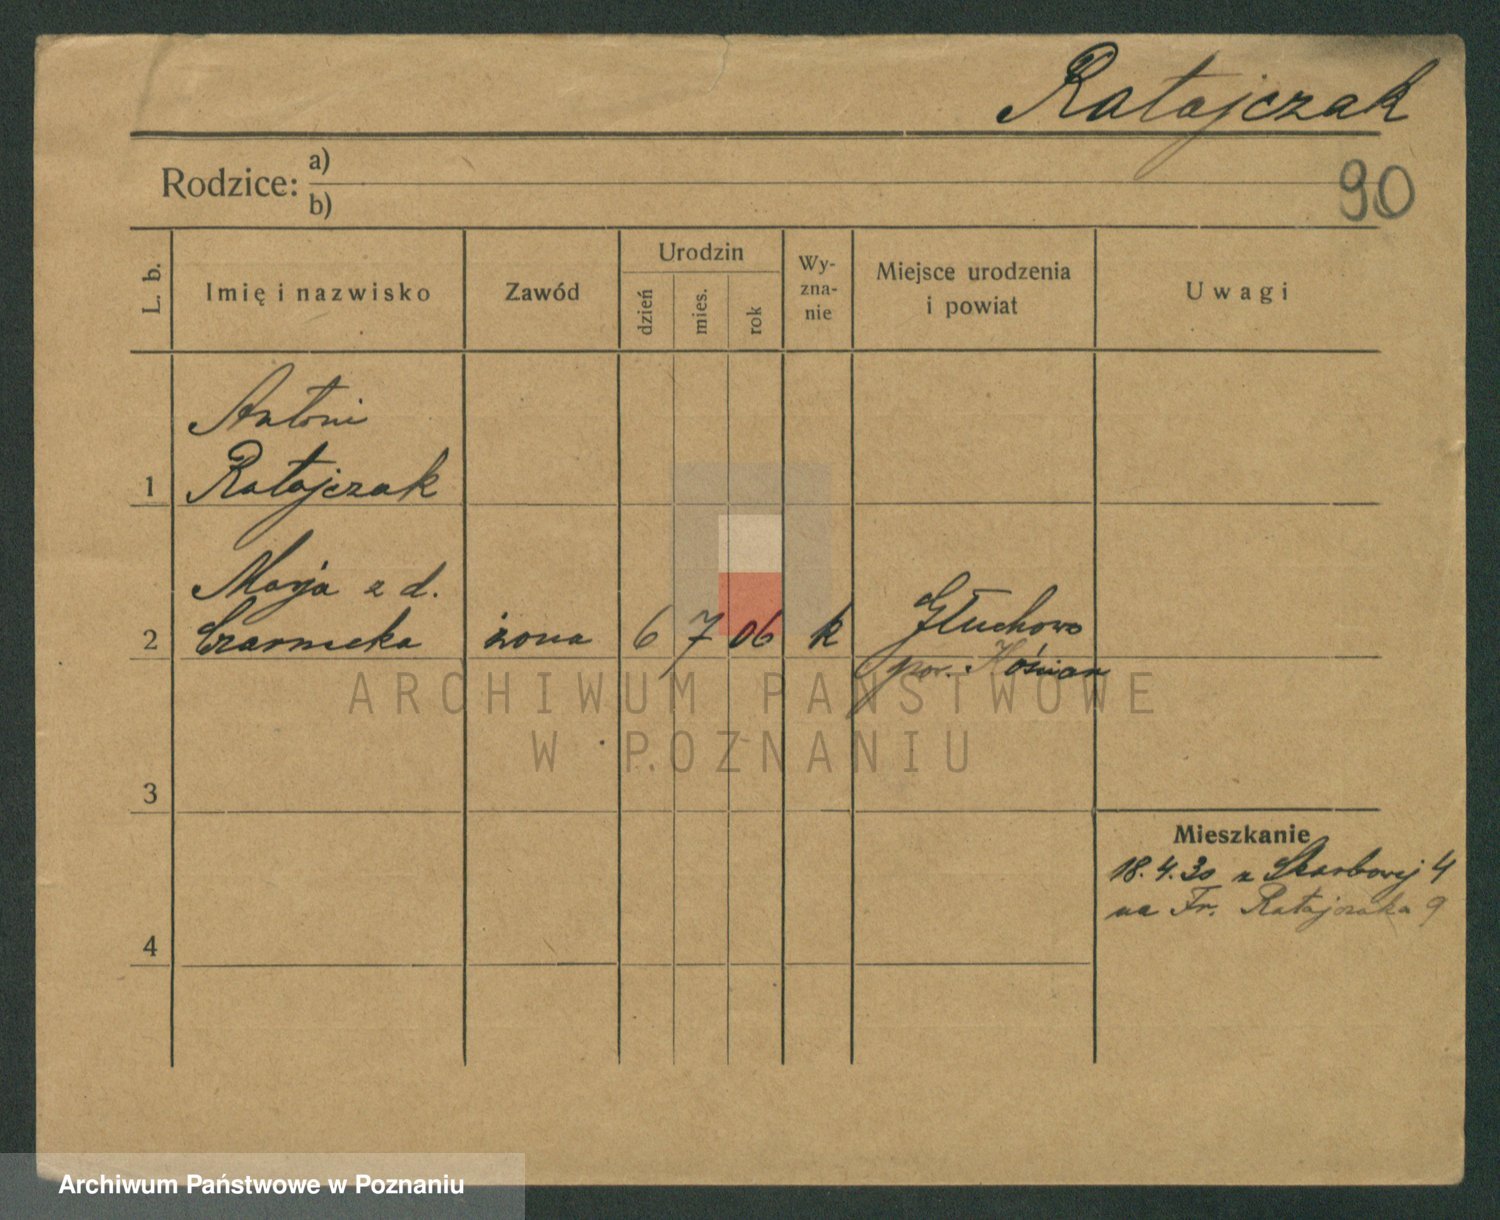 Ratajczak
Rodzice: a)
b)
90
L. b.
Imię i nazwisko
Zawód
Urodzin
dzień
mies.
rok
Wy-
zna-
nie
Miejsce urodzenia
i powiat
Uwagi
Antoni
1 Ratajczak
Marja z d.
2 Czarnecka żona 6 7 06 k Głuchowo
pow. Kościan
ARCHIWUM PAŃSTWOWE
W POZNANIU
3
Mieszkanie
18.4.30 z Skarbowej 4
na Fr. Ratajczaka 9
4
Archiwum Państwowe w Poznaniu